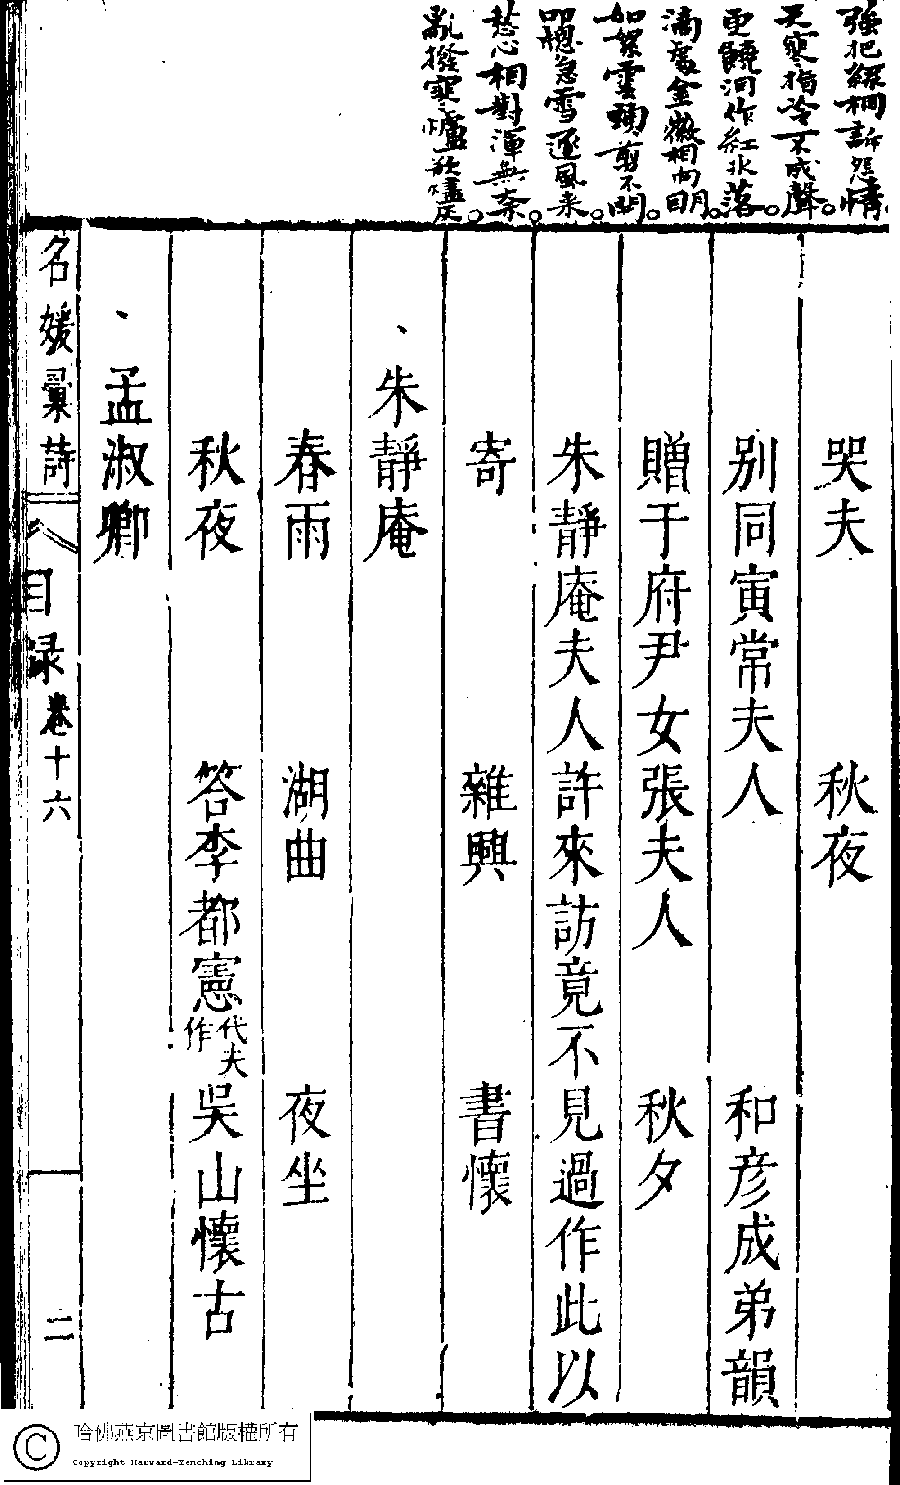 強把絲桐訴怨情
天寒指冷不成聲
更饒洞作紅冰落
滴處金徽相向明
如絮雲頭剪不開
叩檐急雪逐風來
愁心相對渾無奈
亂撥寒爐欲燼灰
哭夫 秋夜
別同寅常夫人 和彥成弟韻
贈于府尹女張夫人 秋夕
朱靜庵夫人許來訪竟不見過作此以
寄 雜興 書懷
朱靜庵
春雨 湖曲 夜坐
秋夜 答李都憲代夫作 吳山懷古
孟淑卿
名媛彙詩 目录 卷十六 二
哈佛燕京圖書館版權所有
Copyright Harvard-Yenching Library